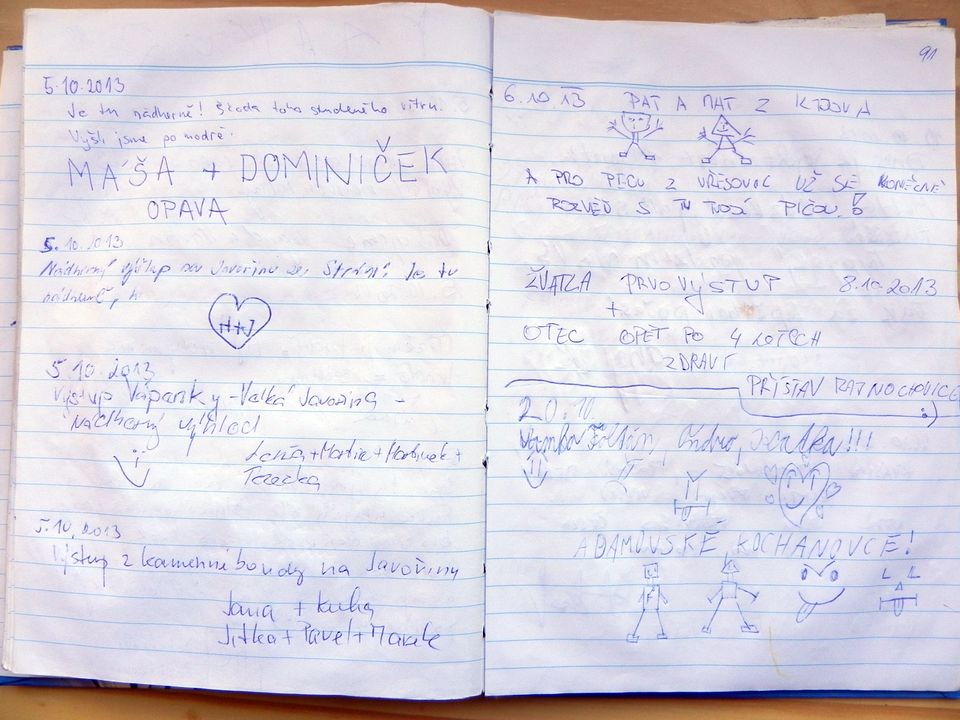 5.10.2013
Je tu nádherně! Škoda toho studeného větru.
Vyšli jsme po modré.
MÁŠA + DOMINIČEK
OPAVA
5.10.2013
Nádherný výstup na Javořinu ze Strání. Je tu
nádherně,
H+J
5.10.2013
Výstup Vápenky - Velká Javořina -
Nádherný výhled
Martin + Martínek +
Terezka
5.10.2013
Výstup z kamenné boudy na Javořinu
Jana +
Jitka + Pavel + Marek
91
6.10 13 PAT A MAT Z KYJOVA
A PRO PICU Z VŘESOVIC UŽ SE KONEČNĚ
ROZVEĎ S TU TVOJÍ PIČOU!
ŽVATLA PRVOVÝSTUP 8.10.2013
+
OTEC OPĚT PO 4 LOTECH
ZDRAVÍ
PŘÍSTAV RATNOCHOVICE
:)
20.10.
Zoltán, !!!
ADAMOVSKÉ KOCHANOVCE!